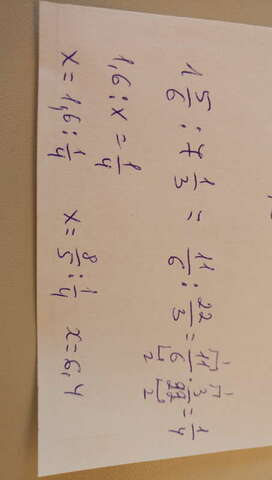 1 5/6 : 7 1/3 = 11/6 : 22/3 = 11/6 · 3/22 = 1/4
1,6 : x = 1/4
x = 1,6 : 1/4 x = 8/5 : 1/4 x = 6,4